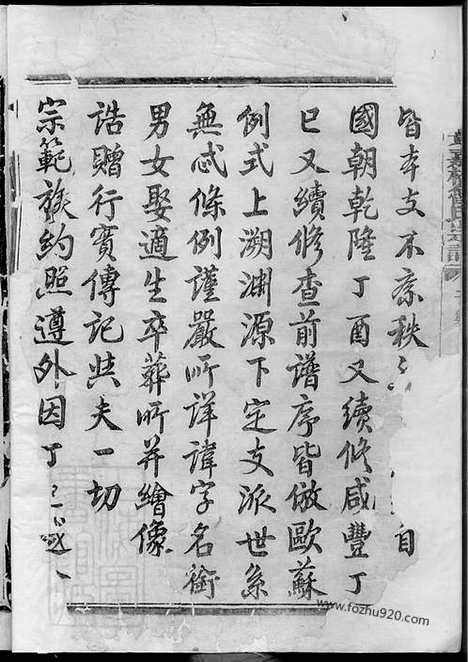 皆本支不紊秩 自
國朝乾隆丁酉又續修咸豐丁
巳又續修查前譜序皆倣歐蘇
例式上溯淵源下定支派世系
無忒條例謹嚴所詳諱字名銜
男女娶適生卒葬所并繪像
誥贈行實傳記共夫一切
宗範族約照遵外因丁
www.fozhu920.com